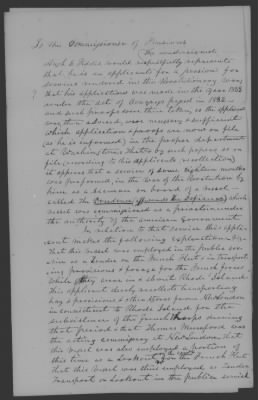 To the Commissioner of Pensions
The undersigned
would respectfully represents
that he is an applicant for a pension for
services rendered in the Revolutionary War
that his applications were made in the year 1832
under the Act of Congress passed in 1832
and such proofs were then taken as the applicant
was then advised, was necessary & sufficient
which application & proofs are now on file
(as he is informed) in the proper department
at Washington. That by such papers so on
file (according to this applicants recollection)
it appears that a service of some Eighteen months
was performed in the War of the Revolution by
him as a Seaman on board of a vessel
called the which
vessel was commissioned as a privateer under
the authority of the American Government
In relation to that service this appli-
cant makes the following explanations viz
that this vessel was employed in the public ser-
vice as a Tender on the French Fleet & in transport-
ing provisions & forage for the French forces
while they were in & about Rhode Island
This applicant direct recollects transporting
hay & provisions & other stores from New London
in Connecticut to Rhode Island for the
subsistence of the French troops during
that period & that Thomas Mumford was
the acting commissary at New London, that
this vessel was also employed a portion of
this time as a Lookout for the French Fleet
that this vessel was thus employed as Tender
Transport or Lookout in the public service